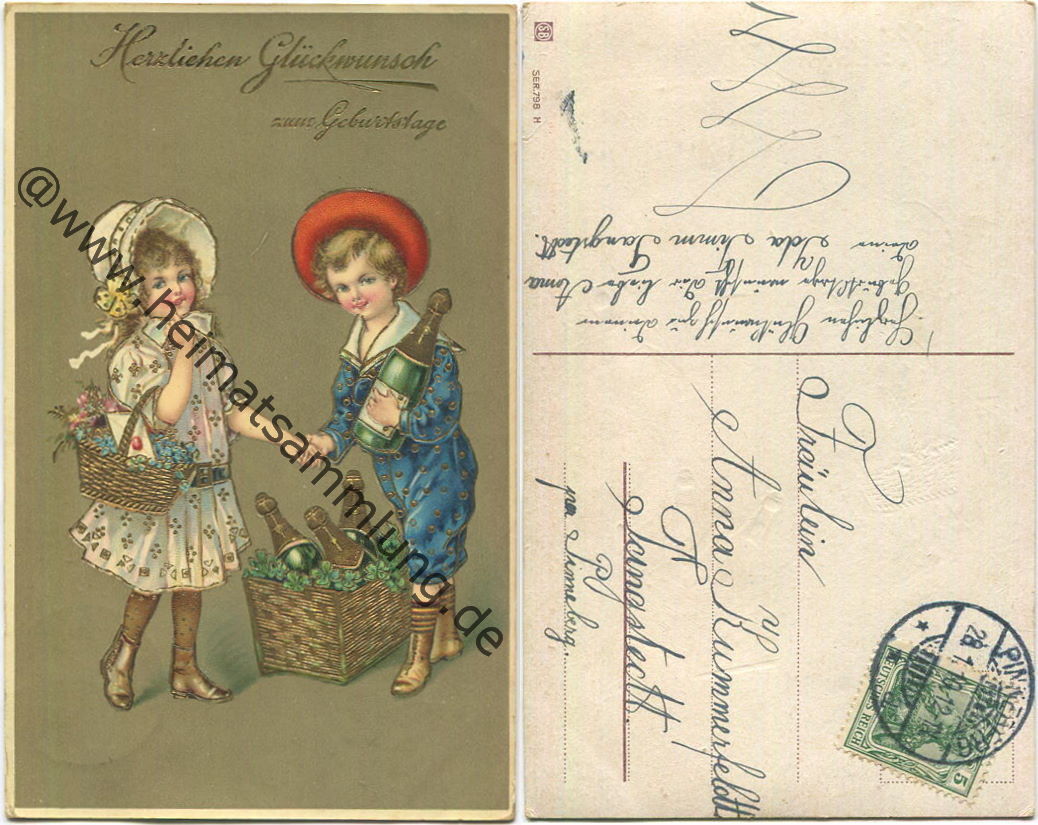 Herzlichen Glückwunsch
zum Geburtstage
@www.heimatsammlung.de
SB
SER.798 H
Herzlichen Glückwunsch zu Deinem
Geburtstage wünscht Dir liebe Anna
Deine Ida Timm Tangstedt.
Fräulein
Anna Kummerfeldt
Tangstedt
pr. Pinneberg.
PINNEBERG
28.1.12
DEUTSCHES REICH
5